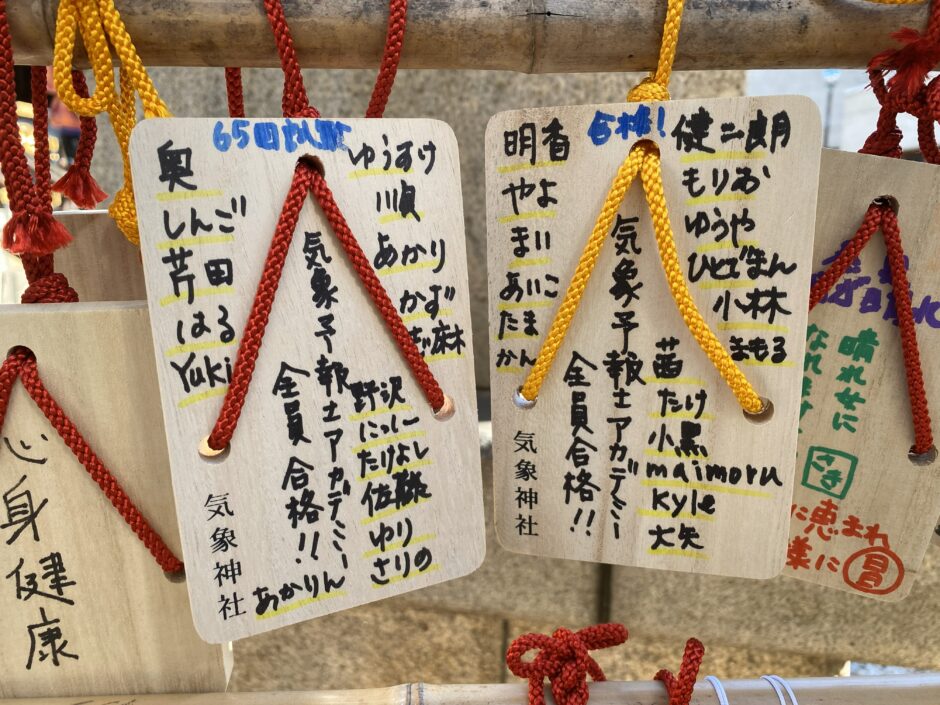 心身健康
65回
奥
しんご
芹田
はる
Yuki
ゆうすけ
順
あかり
かず
気象予報士アカデミー
全員合格!!
野沢
にっしー
たけよし
佐藤
ゆり
さりの
あかりん
気象神社
合格!
明香
やよ
まい
あいこ
たま
かん
健二朗
もりお
ゆうや
ひげまん
小林
まもる
気象予報士アカデミー
全員合格!!
茜
たけ
小黒
maimoru
Kyle
大矢
気象神社
晴れ女に
なれます
に恵まれ
様に